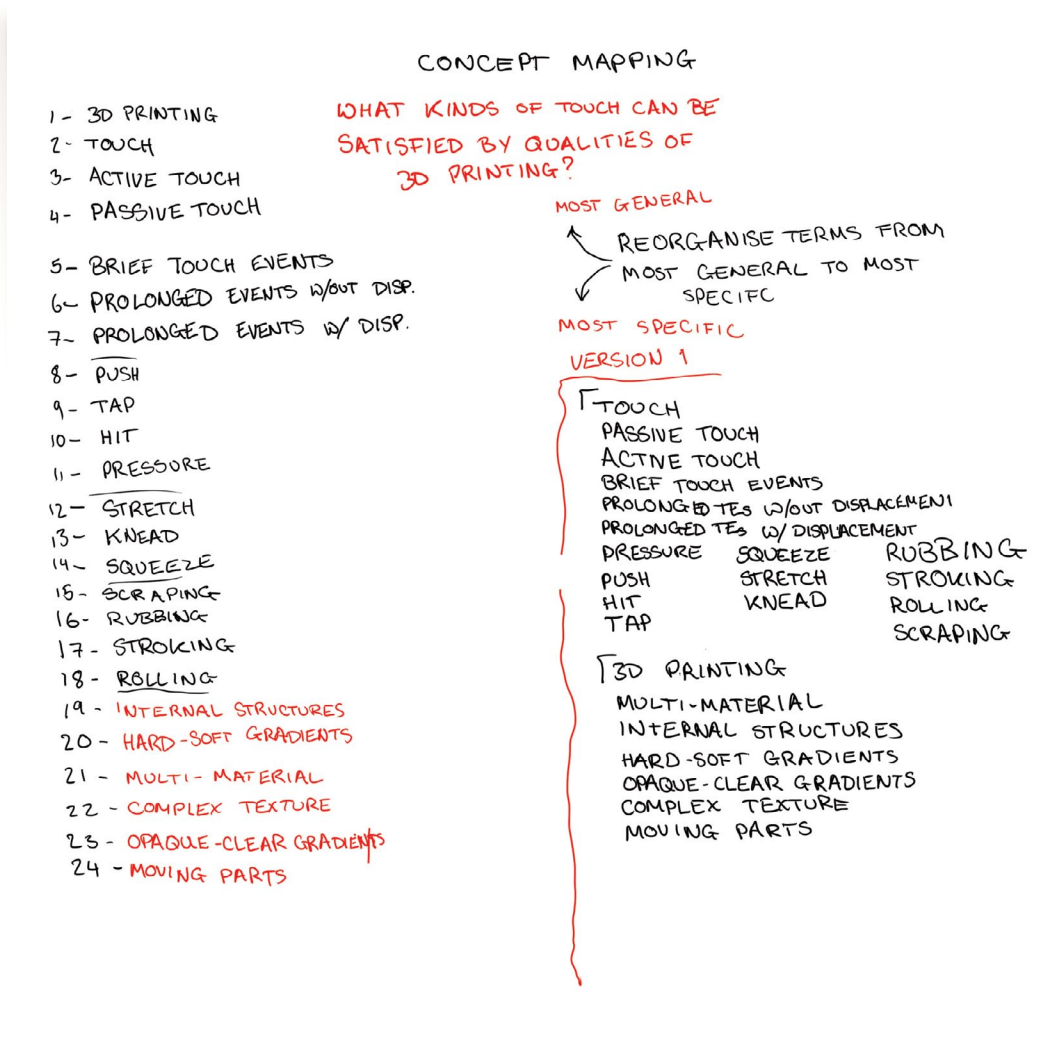 CONCEPT MAPPING
1- 3D PRINTING
2- TOUCH
3- ACTIVE TOUCH
4- PASSIVE TOUCH
5- BRIEF TOUCH EVENTS
6- PROLONGED EVENTS W/OUT DISP.
7- PROLONGED EVENTS W/ DISP.
8- PUSH
9- TAP
10- HIT
11- PRESSURE
12- STRETCH
13- KNEAD
14- SQUEEZE
15- SCRAPING
16- RUBBING
17- STROKING
18- ROLLING
19- INTERNAL STRUCTURES
20- HARD-SOFT GRADIENTS
21- MULTI-MATERIAL
22- COMPLEX TEXTURE
23- OPAQUE-CLEAR GRADIENTS
24- MOVING PARTS
WHAT KINDS OF TOUCH CAN BE
SATISFIED BY QUALITIES OF
3D PRINTING?
MOST GENERAL
REORGANISE TERMS FROM
MOST GENERAL TO MOST
SPECIFC
MOST SPECIFIC
VERSION 1
TOUCH
PASSIVE TOUCH
ACTIVE TOUCH
BRIEF TOUCH EVENTS
PROLONGED TEs W/OUT DISPLACEMENT
PROLONGED TEs W/ DISPLACEMENT
PRESSURE SQUEEZE RUBBING
PUSH STRETCH STROKING
HIT KNEAD ROLLING
TAP SCRAPING
3D PRINTING
MULTI-MATERIAL
INTERNAL STRUCTURES
HARD-SOFT GRADIENTS
OPAQUE-CLEAR GRADIENTS
COMPLEX TEXTURE
MOVING PARTS